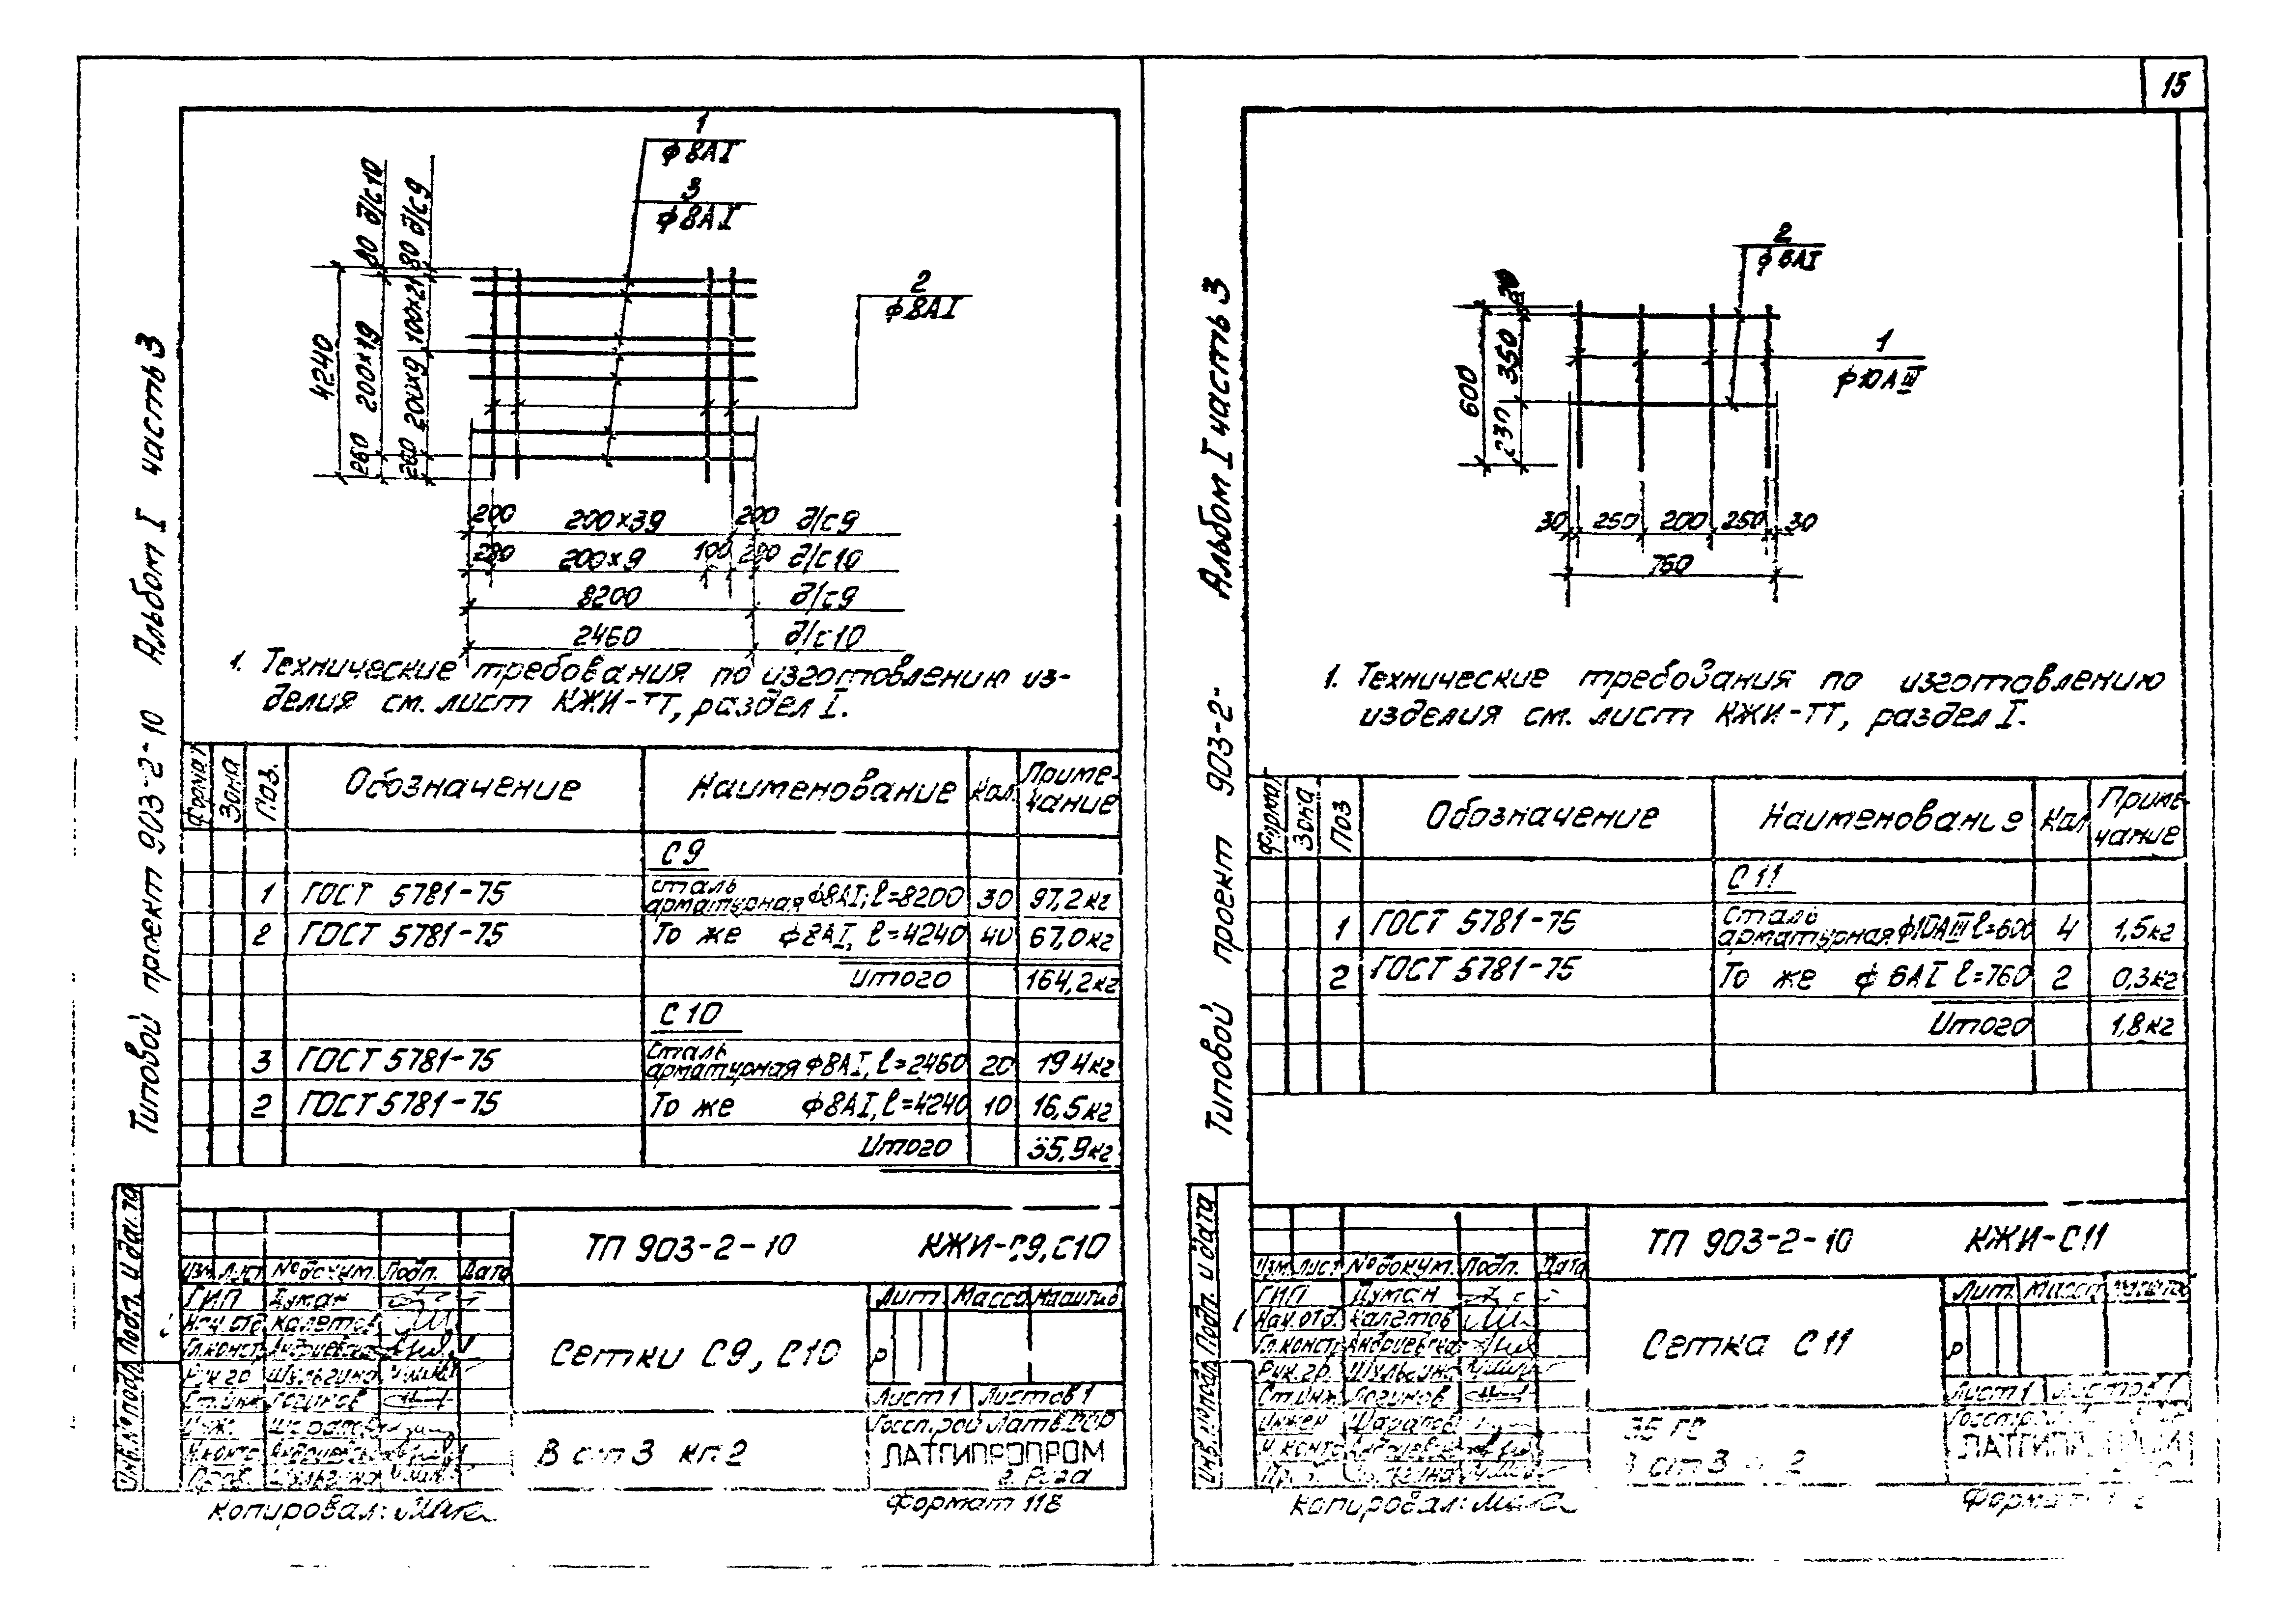 15
Типовой проект 903-2-10 Альбом I часть 3
1
ф8АI
3
ф8АI
2
ф8АI
80 д/с10
80 д/с9
4240
200×19
100×21
200×9
260
260
200 200×39 200 д/с9
200 200×9 100 200 д/с10
8200 д/с9
2460 д/с10
1. Технические требования по изготовлению из-
делия см. лист КЖИ-ТТ, раздел I.
Формат Зона Поз. Обозначение Наименование Кол. Приме-
чание
С9
1 ГОСТ 5781-75 сталь арматурная ф8АI; ℓ=8200 30 97,2кг
2 ГОСТ 5781-75 То же ф8АI, ℓ=4240 40 67,0кг
Итого 164,2кг
С10
3 ГОСТ 5781-75 сталь арматурная ф8АI, ℓ=2460 20 19 4кг
2 ГОСТ 5781-75 То же ф8АI, ℓ=4240 10 16,5кг
Итого 35,9кг
ТП 903-2-10 КЖИ-С9,С10
Изм. Лист № докум. Подп. Дата
ГИП Думан
Нач. отд Калетов
Гл.констр Андриевская
Рук гр Шульгина
Ст.инж Логинов
Инж.
Н.контр Андриевская
Пров. Шульгина
Сетки С9, С10
Лит. Масса Масштаб
Р
Лист 1 Листов 1
В ст 3 кп 2
Госстрой Латв.ССР
ЛАТГИПРОПРОМ
г. Рига
Инв.№ подл. Подп. и дата
Копировал:
Формат 11В
Типовой проект 903-2- Альбом I часть 3
2
ф 6АI
1
ф10АIII
20
350
230
600
30 250 200 250 30
760
1. Технические требования по изготовлению
изделия см. лист КЖИ-ТТ, раздел I.
Формат Зона Поз Обозначение Наименование Кол Приме-
чание
С 11
1 ГОСТ 5781-75 сталь арматурная ф10АIII ℓ=600 4 1,5кг
2 ГОСТ 5781-75 То же ф 6АI ℓ=760 2 0,3кг
Итого 1,8кг
ТП 903-2-10 КЖИ-С11
Изм. Лист № докум. Подп. Дата
ГИП Думан
Нач. отд. Калетов
Гл.констр Андриевская
Рук. гр. Шульгина
Ст.инж Логинов
Инжен
Н.контр Андриевская
Сетка С 11
Лит. Масса Масштаб
Р
Лист 1 Листов 1
ст 3 2
Инв.№ подл. Подп. и дата
Копировал:
Формат